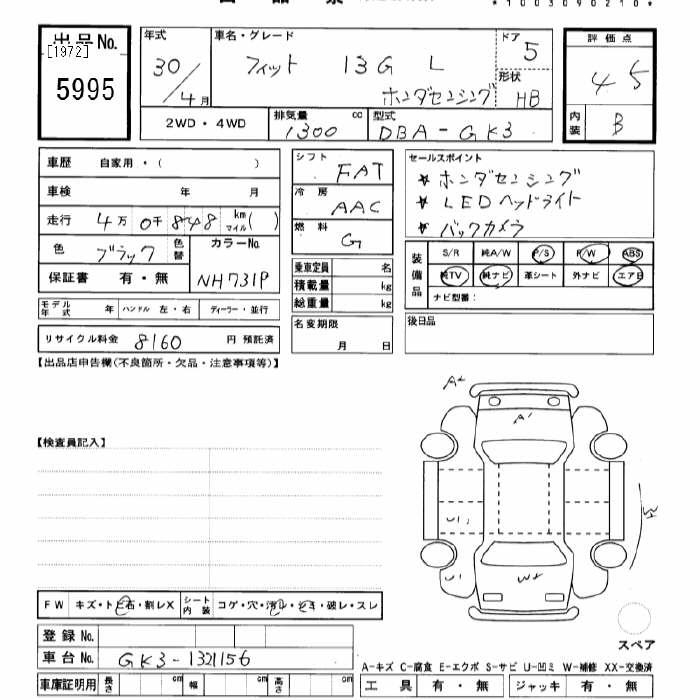 *1003090210*
出品No.
[1972]
5995
年式
30/4月
車名・グレード
フィット 13G L
ホンダセンシング
ドア
5
形状
HB
評価点
4.5
内装
B
2WD・4WD
排気量
1300 cc
型式
DBA-GK3
車歴 自家用・( )
車検 年 月
走行 4万0千848 km マイル( )
色 ブラック 色替
カラーNo.
NH731P
保証書 有・無
モデル年式 年 ハンドル 左・右 ディーラー・並行
リサイクル料金 8160 円 預託済
シフト
FAT
冷房
AAC
燃料
G
乗車定員 名
積載量 kg
総重量 kg
名変期限
月 日
セールスポイント
★ホンダセンシング
★LEDヘッドライト
★バックカメラ
装備品
S/R 純A/W P/S P/W ABS
純TV 純ナビ 革シート 外ナビ エアB
ナビ型番:
後日品
【出品店申告欄(不良箇所・欠品・注意事項等)】
【検査員記入】
A2
A1
U1
U1
W2
スペア
FW キズ・トビ石・割レX シート内装 コゲ・穴・汚レ・シミ・破レ・スレ
登録No.
車台No. GK3-1321156
車庫証明用 長さ cm 幅 cm 高さ cm
A-キズ C-腐食 E-エクボ S-サビ U-凹ミ W-補修 XX-交換済
工具 有・無 ジャッキ 有・無